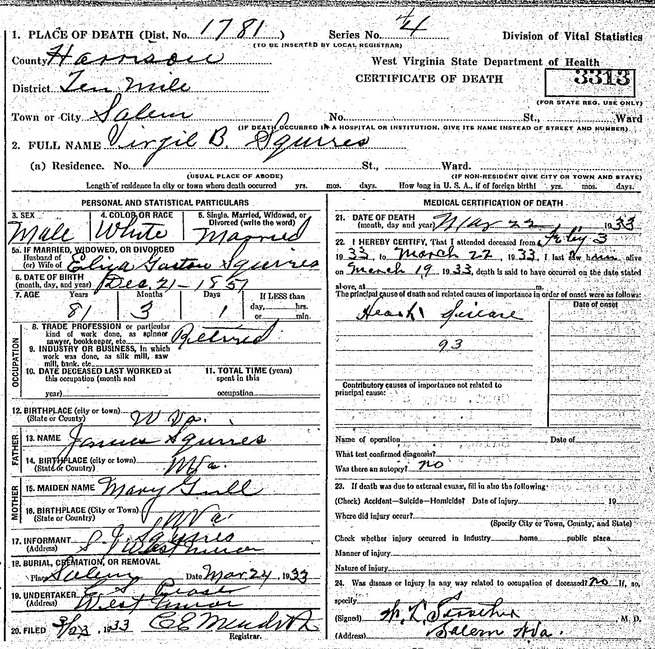 1. PLACE OF DEATH (Dist. No. 1781) Series No. 4 Division of Vital Statistics
(TO BE INSERTED BY LOCAL REGISTRAR)
County Harrison West Virginia State Department of Health
District Ten Mile CERTIFICATE OF DEATH 3313
(FOR STATE REG. USE ONLY)
Town or City Salem No. St., Ward
(IF DEATH OCCURRED IN A HOSPITAL OR INSTITUTION, GIVE ITS NAME INSTEAD OF STREET AND NUMBER)
2. FULL NAME Virgil B. Squires
(a) Residence. No. St., Ward.
(USUAL PLACE OF ABODE) (IF NON-RESIDENT GIVE CITY OR TOWN AND STATE)
Length of residence in city or town where death occurred yrs. mos. days. How long in U. S. A., if of foreign birth! yrs. mos. days.
PERSONAL AND STATISTICAL PARTICULARS
3. SEX 4. COLOR OR RACE 5. Single, Married, Widowed, or
Divorced (write the word)
Male White Married
5a. IF MARRIED, WIDOWED, OR DIVORCED
Husband of
(or) Wife of Eliza Gaston Squires
6. DATE OF BIRTH
(month, day, and year) Dec, 21-1851
7. AGE Years Months Days If LESS than
day, hrs.
81 3 1 or min.
OCCUPATION
8. TRADE PROFESSION or particular
kind of work done, as spinner
sawyer, bookkeeper, etc. Retired
9. INDUSTRY OR BUSINESS, in which
work was done, as silk mill, saw
mill, bank, etc.
10. DATE DECEASED LAST WORKED at
this occupation (month and
year)
11. TOTAL TIME (years)
spent in this
occupation
12. BIRTHPLACE (city or town)
(State or County) W Va.
FATHER
13. NAME James Squires
14. BIRTHPLACE (city or town)
(State or County)
MOTHER
15. MAIDEN NAME Mary
16. BIRTHPLACE (City or Town)
(State or County) W Va.
17. INFORMANT S. J. Squires
(Address) West Union
18. BURIAL, CREMATION, OR REMOVAL
Place Salem Date Mar 24, 1933
19. UNDERTAKER
(Address) West Union
20. FILED 1933
Registrar.
MEDICAL CERTIFICATION OF DEATH
21. DATE OF DEATH
(month, day, and year) Mar 22 1933
22. I HEREBY CERTIFY, That I attended deceased from Feby 3
1933, to March 22, 1933, I last saw him alive
on March 19 1933, death is said to have occurred on the date stated
above, at m.
The principal cause of death and related causes of importance in order of onset were as follows:
Date of onset
Heart disease
93
Contributory causes of importance not related to
principal cause:
Name of operation Date of
What test confirmed diagnosis?
Was there an autopsy? no
23. If death was due to external cause, fill in also the following:
(Check) Accident—Suicide—Homicide? Date of injury 19
Where did injury occur?
(Specify City or Town, County, and State)
Check whether injury occurred in Industry home public place
Manner of injury
Nature of injury
24. Was disease or injury in any way related to occupation of deceased? no If, so,
specify
(Signed) M. D.
(Address) Salem W Va.